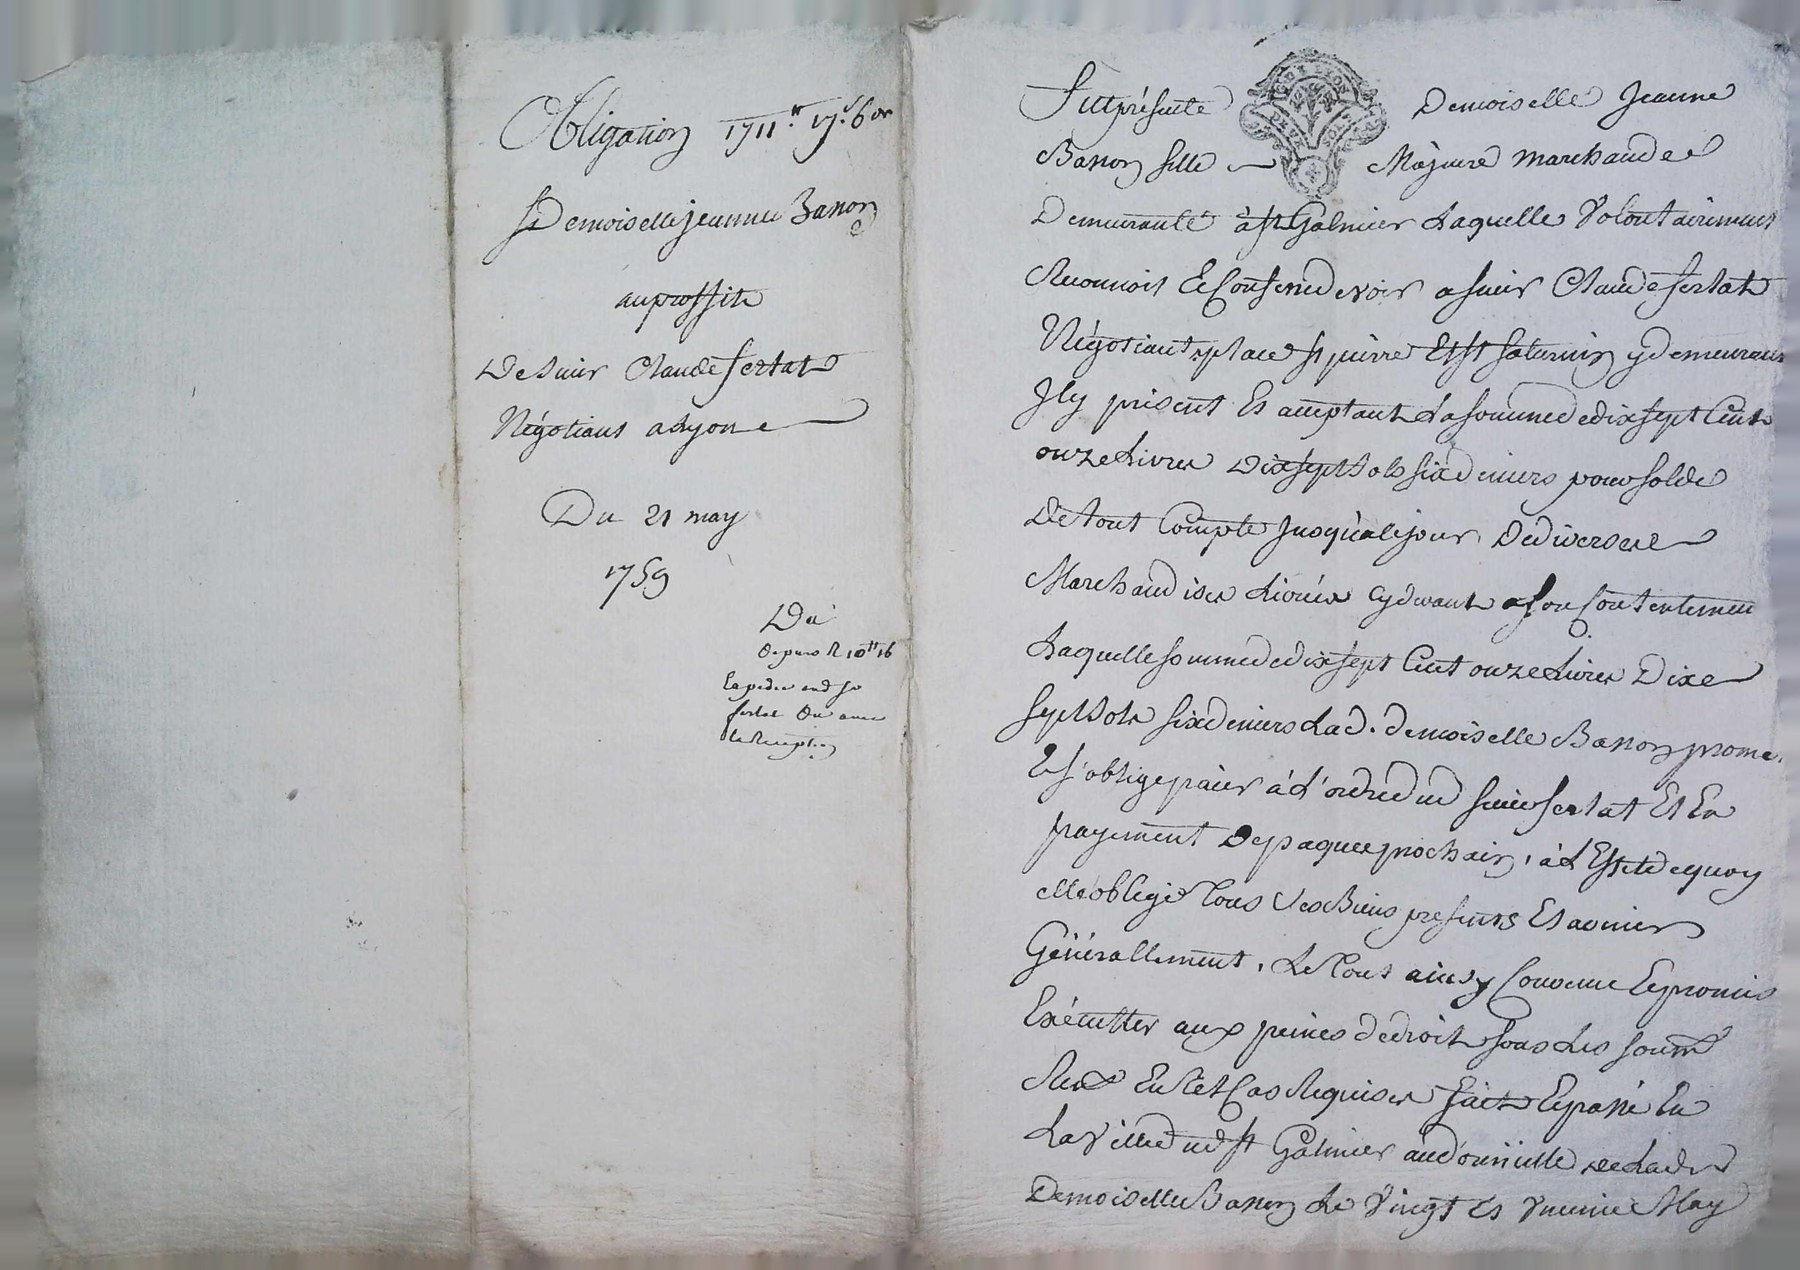 Obligation 1711.tt 17.s 6 drs
De Demoiselle jeanne Basson
au proffit
De Sieur Claude fertat
Négotiant a Lyon
Du 21 may
1759
Du
fertat
la Reception
Fut présente Demoiselle Jeanne
Basson fille Majeure marchande
Demeurante à St Galmier Laquelle Volontairement
Reconnoit Et Confesse devoir a sieur Claude fertat
Négotiant place St pierre Et St saturnin y demeurant
Icy present Et acceptant La somme de dix sept Cent
onze Livres Dix sept sols six deniers pour solde
De tout Compte Jusqu'a le jour De diverses
Marchandises Livrées Cy devant a son Contentement
Laquelle somme de dix sept Cent onze Livres Dixe
sept sols six deniers Lad. demoiselle Basson prome.
Et s'oblige paier à L'ordre dud sieur fertat Et En
payement De paques prochain, à L'Effet de quoy
elle oblige Tous ses Biens presents Et avenier
Générallement, Le Tout ainsy Convenu Et promis
Exécutter aux peines de droit sous Les soum.
Ren. En Tel Cas Requises fait Et passé En
La Ville de St Galmier au domicille de Ladte
Demoiselle Basson Le Vingt Et Unieme May